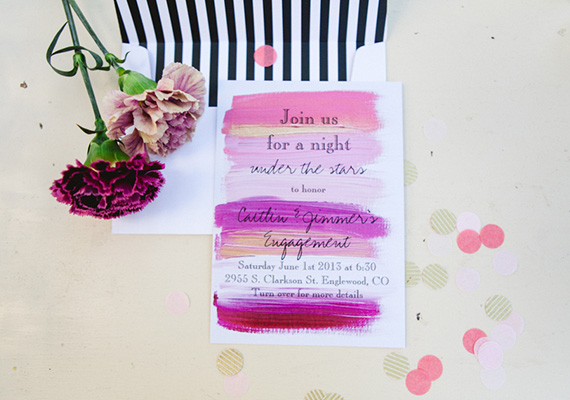 Join us
for a night
under the stars
to honor
Caitlin & Jimmer's
Engagement
Saturday June 1st 2013 at 6:30
2955 S. Clarkson St. Englewood, CO
Turn over for more details